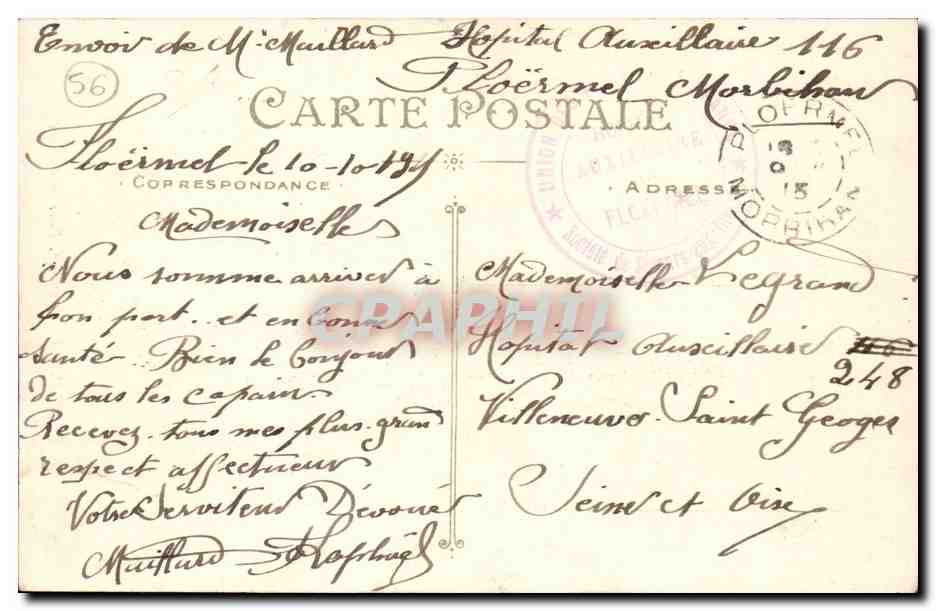 Envoi de Mr Maillard Hopital Auxillaire 116
Ploërmel Morbihan
56
CARTE POSTALE
Ploërmel le 10-10-195
CORRESPONDANCE
ADRESSE
UNION
AUXILIAIRE
PLOERMEL
MORBIHAN
Mademoiselle
Nous somme arriver à
bon port. et en bonne
santé. Bien le bonjour
de tous les copain
Recevez. tous mes plus. grand
respect affectueux
Votre Serviteur Dévoué
Maillard Raphaël
Mademoiselle Legrand
Hopital Auxillaire 116
248
Villeneuve. Saint Geoges
Seine et Oise
CPAPHIL